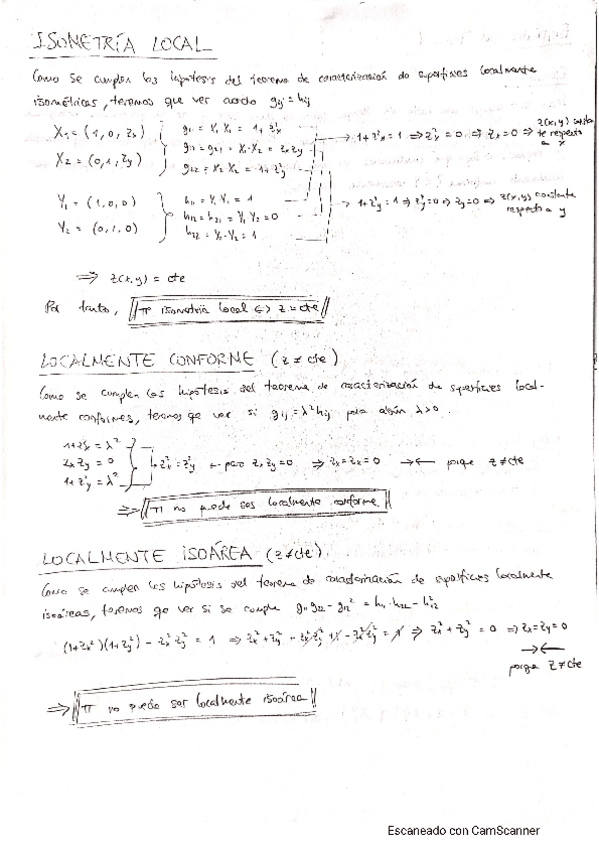 ISOMETRÍA LOCAL
Como se cumplen las hipótesis del teorema de caracterización de superficies localmente
isométricas, tenemos que ver cuando gij = hij
X₁ = (1, 0, zx)
X₂ = (0, 1, zy)
g₁₁ = X₁·X₁ = 1 + z²x
g₁₂ = g₂₁ = X₁·X₂ = zx zy
g₂₂ = X₂·X₂ = 1 + z²y
→ 1+z²x = 1 ⇒ z²x = 0 ⇒ zx = 0 ⇒ z(x,y) constante respecto a x
Y₁ = (1, 0, 0)
Y₂ = (0, 1, 0)
h₁₁ = Y₁·Y₁ = 1
h₁₂ = h₂₁ = Y₁·Y₂ = 0
h₂₂ = Y₂·Y₂ = 1
→ 1+z²y = 1 ⇒ z²y = 0 ⇒ zy = 0 ⇒ z(x,y) constante respecto a y
⇒ z(x,y) = cte
Por tanto, π isometría local ⇔ z = cte
LOCALMENTE CONFORME (z ≠ cte)
Como se cumplen las hipótesis del teorema de caracterización de superficies local-
mente conformes, tenemos que ver si gij = λ² hij para algún λ > 0.
1+z²x = λ²
zx zy = 0
1+z²y = λ²
z²x = z²y ← pero zx zy = 0 ⇒ zx = zx = 0 →← porque z ≠ cte
⇒ π no puede ser localmente conforme
LOCALMENTE ISOÁREA (z ≠ cte)
Como se cumplen las hipótesis del teorema de caracterización de superficies localmente
isoáreas, tenemos que ver si se cumple g₁₁g₂₂ - g₁₂² = h₁₁·h₂₂ - h₁₂²
(1+zx²)(1+zy²) - z²x z²y = 1 ⇒ z²x + z²y + z²x z²y + 1 - z²x z²y = 1 ⇒ z²x + z²y = 0 ⇒ zx = zy = 0
→←
porque z ≠ cte
⇒ π no puede ser localmente isoárea
Escaneado con CamScanner